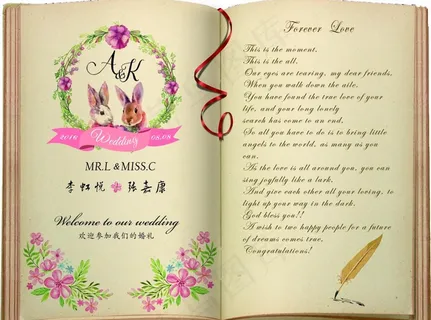 A&K
2018 Wedding 08.08
MR.L &MISS.C
李虹悦 张嘉康
Welcome to our wedding
欢迎参加我们的婚礼
Forever Love
This is the moment.
This is the all.
Our eyes are tearing, my dear friends,
When you walk down the aile.
You have found the true love of your
life, and your long lonely
search has come to an end.
So all you have to do is to bring little
angels to the world, as many as you
can.
As the love is all around you, you can
sing joyfully like a lark.
And give each other all your loving, to
light up your way in the dark.
God bless you!!
A wish to two happy people for a future
of dreams comes true.
Congratulations!